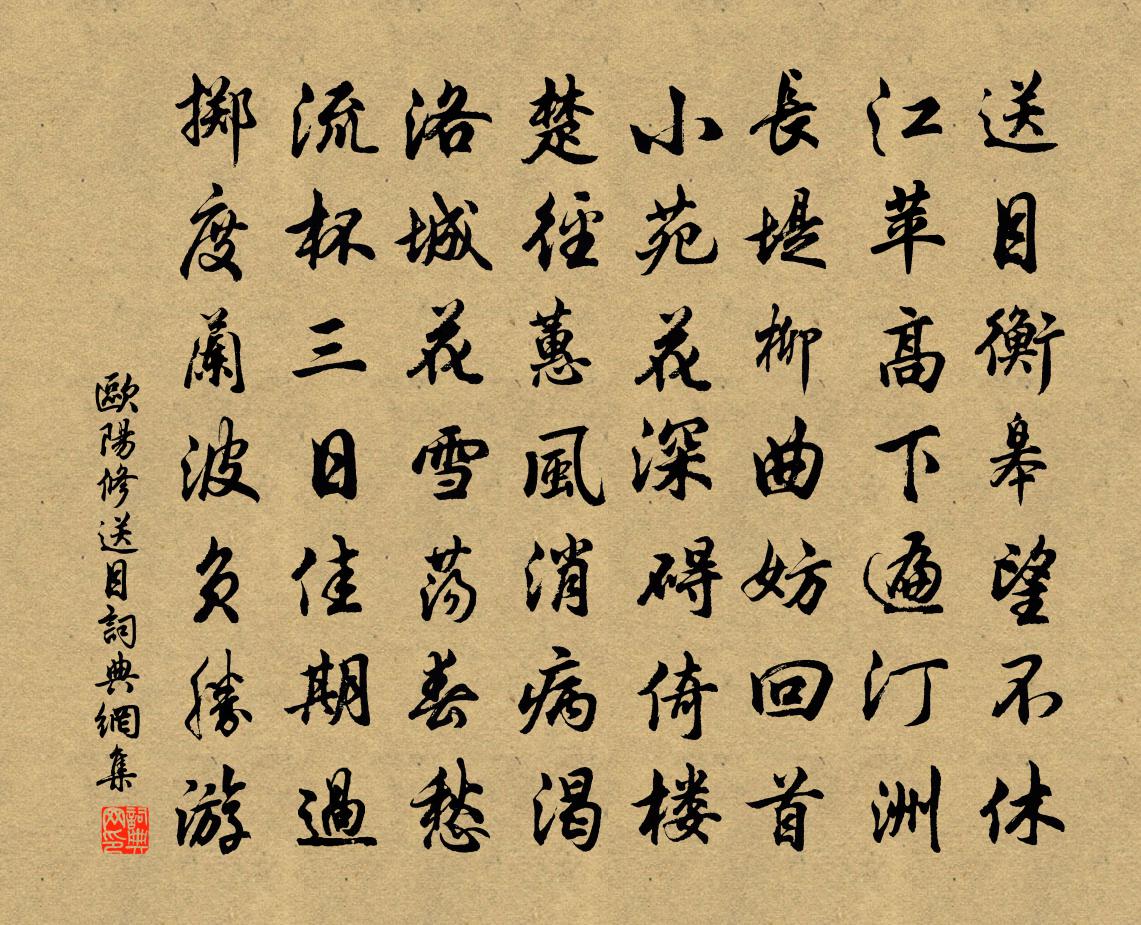 送目衡皋望不休
江苹高下遍汀洲
長堤柳曲妨回首
小苑花深碍倚楼
楚徑蕙風消病渴
洛城花雪荡春愁
流杯三日佳期過
擲度蘭波负勝游
歐陽修送目詞典網集
詞典网印